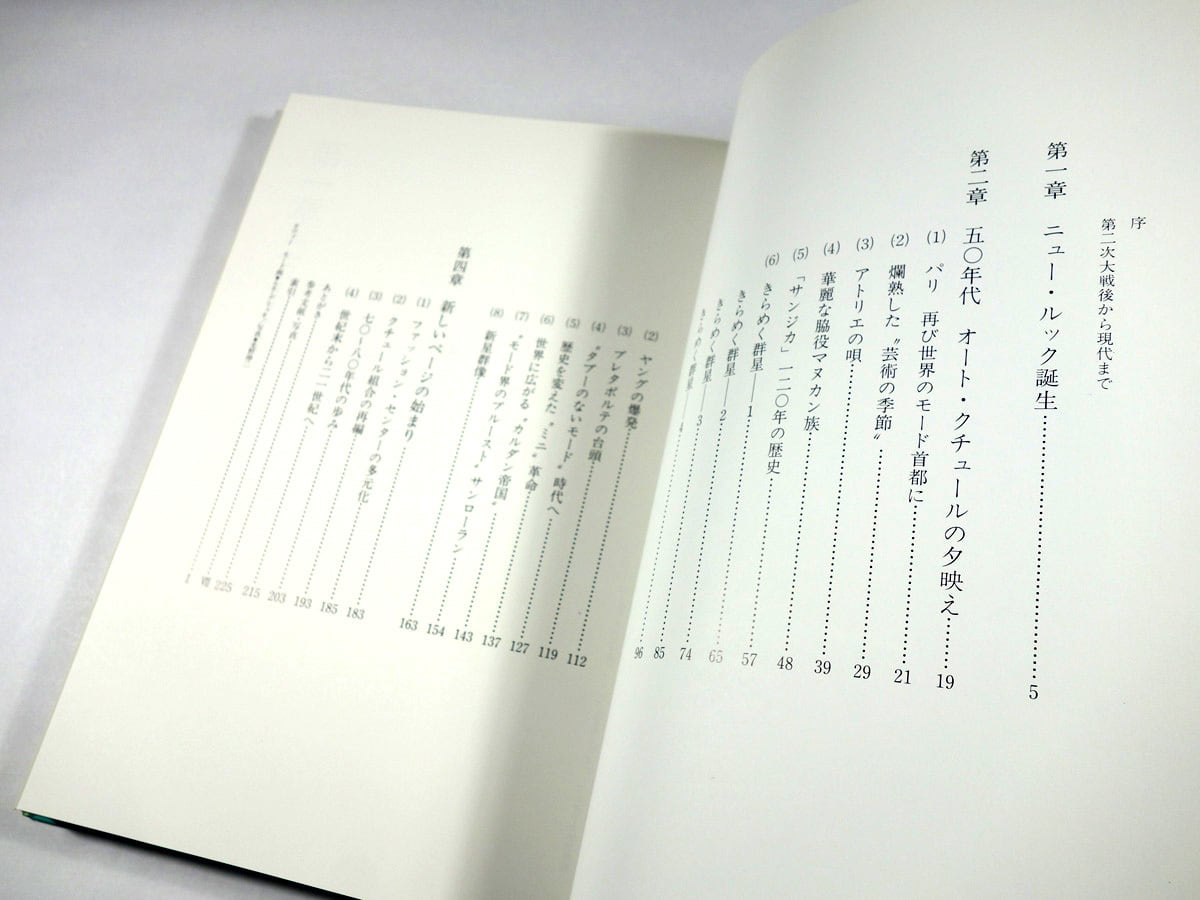 序
第二次大戦後から現代まで
第一章 ニュー・ルック誕生……5
第二章 五〇年代 オート・クチュールの夕映え……19
(1) パリ 再び世界のモード首都に……21
(2) 爛熟した〝芸術の季節〟……29
(3) アトリエの唄……39
(4) 華麗な脇役マヌカン族……48
(5) 「サンジカ」一二〇年の歴史……57
(6) きらめく群星――1……65
きらめく群星――2……74
きらめく群星――3……85
きらめく群星――4……96
(2) ヤングの爆発……112
(3) プレタポルテの台頭……119
(4) 〝タブーのないモード〟時代へ……127
(5) 歴史を変えた〝ミニ〟革命……137
(6) 世界に広がる〝カルダン帝国〟……143
(7) 〝モード界のプルースト〟サンローラン……154
(8) 新星群像……163
第四章 新しいページの始まり……183
(1) ファッション・センターの多元化……185
(2) クチュール組合の再編……193
(3) 七〇-八〇年代の歩み……203
(4) 世紀末から二一世紀へ……215
あとがき……225
参考文献・写真……Ⅶ
索引……1